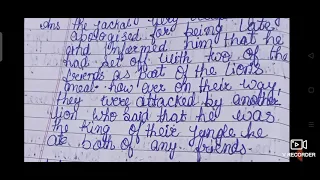 Ans the jackal very
apologised for being late
and informed him that he
had set off with two of the
friends as part of the lion's
meal. how ever on their way,
they were attacked by another
lion who said that he was
the king of their jungle he
ate both of any friends.
RECORDER